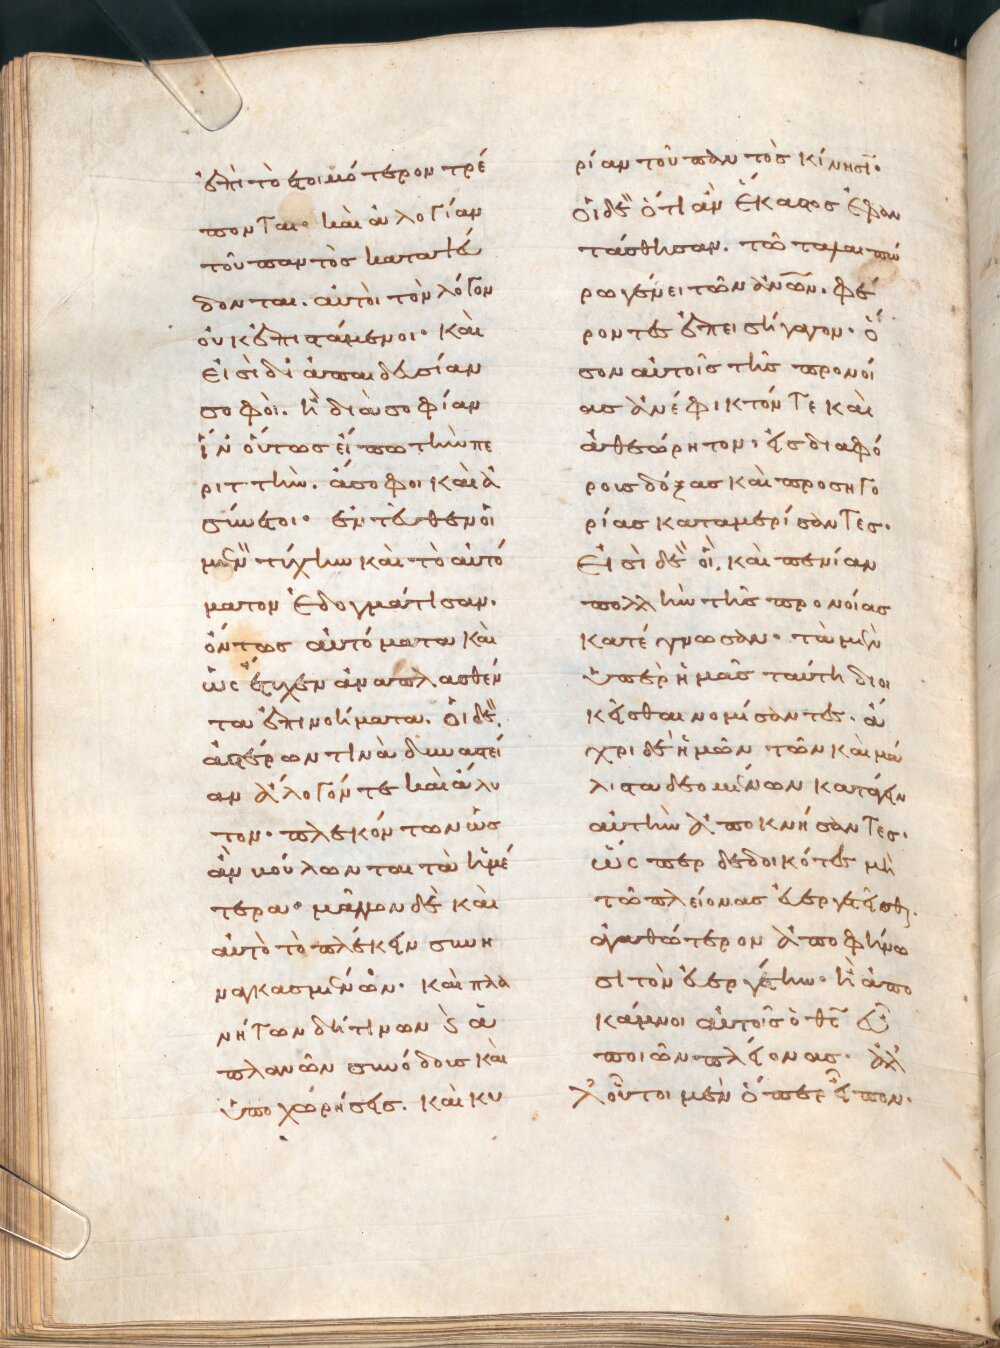 ἐπὶ τὸ ἑτοιμότερον τρέ
πονται· καὶ ἀλογίαν
τοῦ παντὸς καταψεύ
δονται. αὐτοὶ τὸν λόγον
οὐκ ἐπιστάμενοι· καὶ
εἰσὶ δι' ἀπαιδευσίαν
σοφοὶ. ἢ διὰ σοφίαν
ἵν' οὕτως εἴπω τὴν πε
ριττὴν. ἄσοφοι καὶ ἀ
σύνετοι· ἐντεῦθεν οἱ
μὲν τύχην καὶ τὸ αὐτό
ματον ἐδογμάτισαν.
ὄντως αὐτόματα καὶ
ὡς ἔτυχεν ἀναπλασθέν
τα ἐπινοήματα. οἱ δὲ,
ἀστέρων τινὰ δυναστεί
αν ἄλογόν τε καὶ ἄλυ
τον· πλεκόντων ὡς
ἂν βούλωνται τὰ ἡμέ
τερα· μᾶλλον δὲ καὶ
αὐτὸ τὸ πλέκειν συνη
ναγκασμένων· καὶ πλα
νήτων δή τινων ϗ ἀ
πλανῶν συνόδοις καὶ
ὑποχωρήσεσι. καὶ κυ
ρίαν τοῦ παντὸς κίνησιν·
οἱ δὲ ὅτι ἂν ἕκαστος ἐφαν
τάσθησαν. τῷ ταλαιπώ
ρῳ γένει τῶν ἀνων. φέ
ροντες ἐπεισήγαγον· ὅ
σον αὐτοῖς τῆς προνοί
ας ἀνέφικτόν τε καὶ
ἀθεώρητον· εἰς διαφό
ροις δόξας καὶ προσηγο
ρίας καταμερίσαντες.
Εἰσὶ δὲ οἳ, καὶ πενίαν
πολλὴν τῆς προνοίας
κατέγνωσαν· τὰ μὲν
ὑπὲρ ἡμᾶς ταύτῃ διοι
κεῖσθαι νομίσαντες. ἄ
χρι δὲ ἡμῶν τῶν καὶ μά
λιστα δεομένων κατάγειν
αὐτὴν ἀποκνήσαντες.
ὥσπερ δεδοικότες μὴ
τῷ πλείονας εὐεργετεῖσθαι.
ἀγαθώτερον ἀποφήνω
σι τὸν εὐεργέτην· ἢ ἀπο
κάμνοι αὐτοῖς ὁ θς εὖ
ποιῶν πλείονας. ἀλ
λ' οὗτοι μὲν ὅπερ εἶπον.